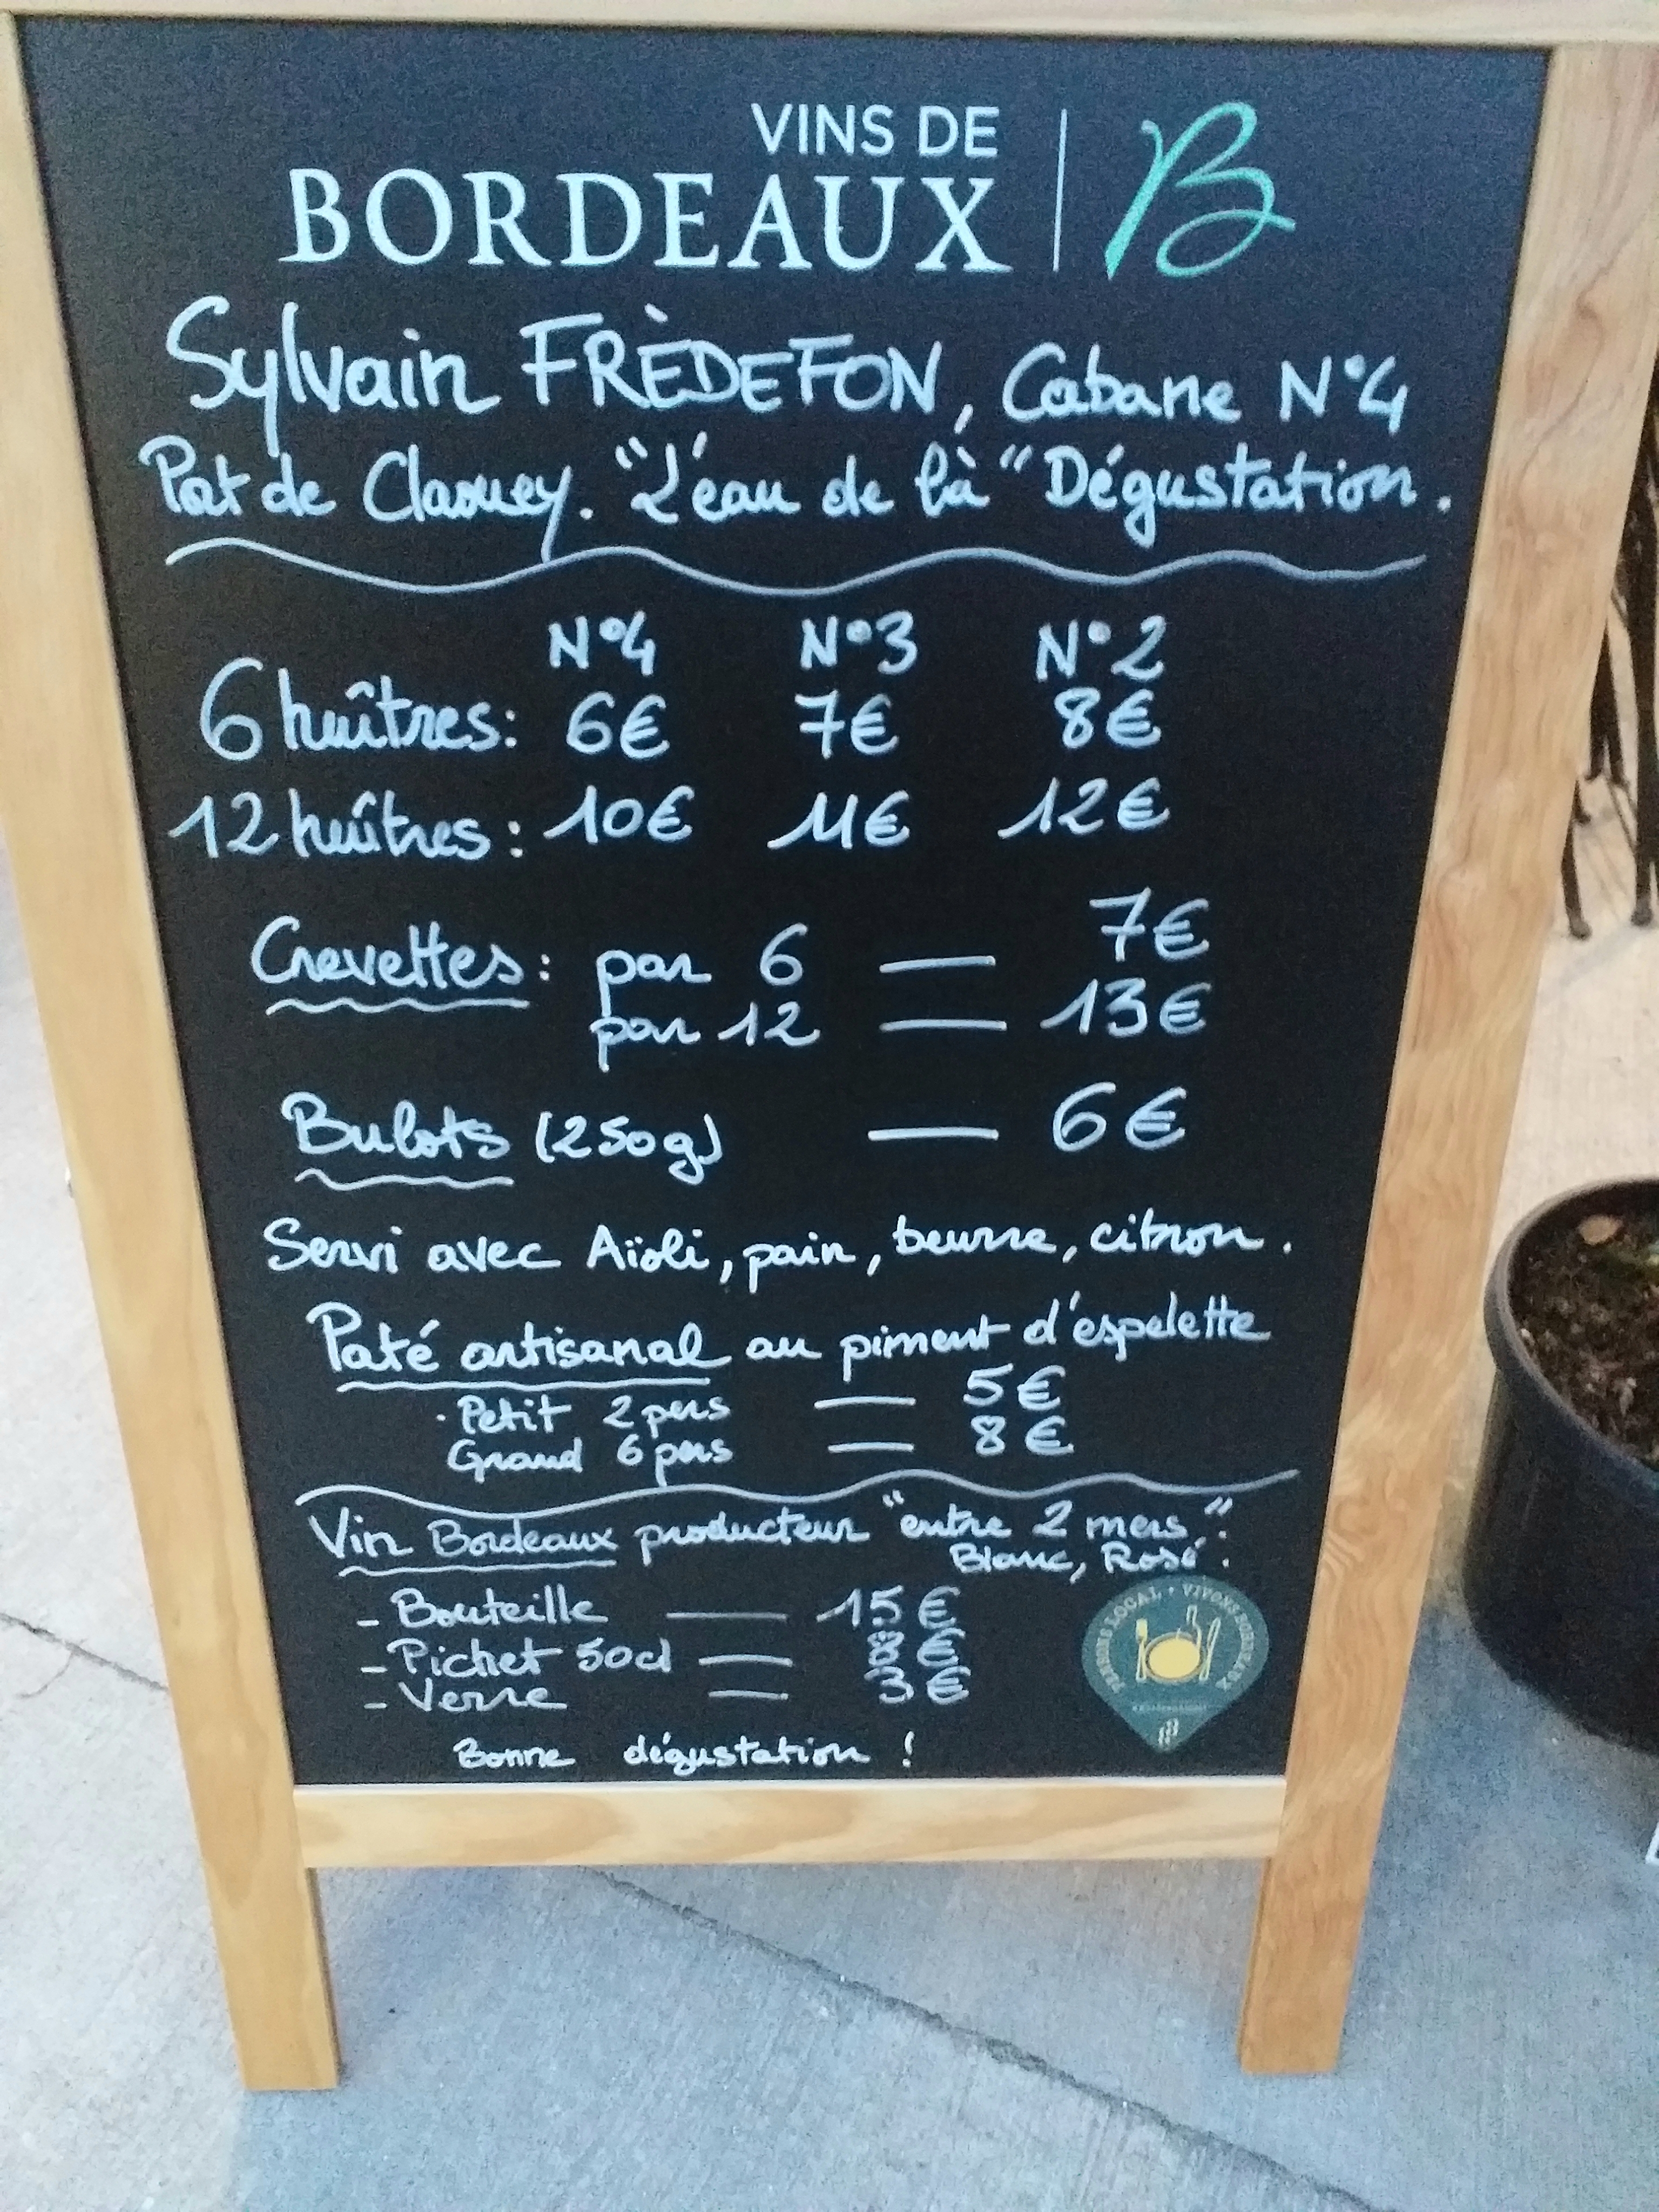 VINS DE
BORDEAUX B
Sylvain FRÈDEFON, Cabane N°4
Port de Claouey. "L'eau de là" Dégustation.
N°4 N°3 N°2
6 huîtres: 6€ 7€ 8€
12 huîtres: 10€ 11€ 12€
Crevettes: par 6 — 7€
par 12 — 13€
Bulots (250g) — 6€
Servi avec Aïoli, pain, beurre, citron.
Paté artisanal au piment d'espelette
· Petit 2 pers — 5€
Grand 6 pers — 8€
Vin Bordeaux producteur "entre 2 mers":
Blanc, Rosé.
- Bouteille — 15€
- Pichet 50cl — 8€
- Verre — 3€
LOCAL • VIVONS BORDEAUX
Bonne dégustation !